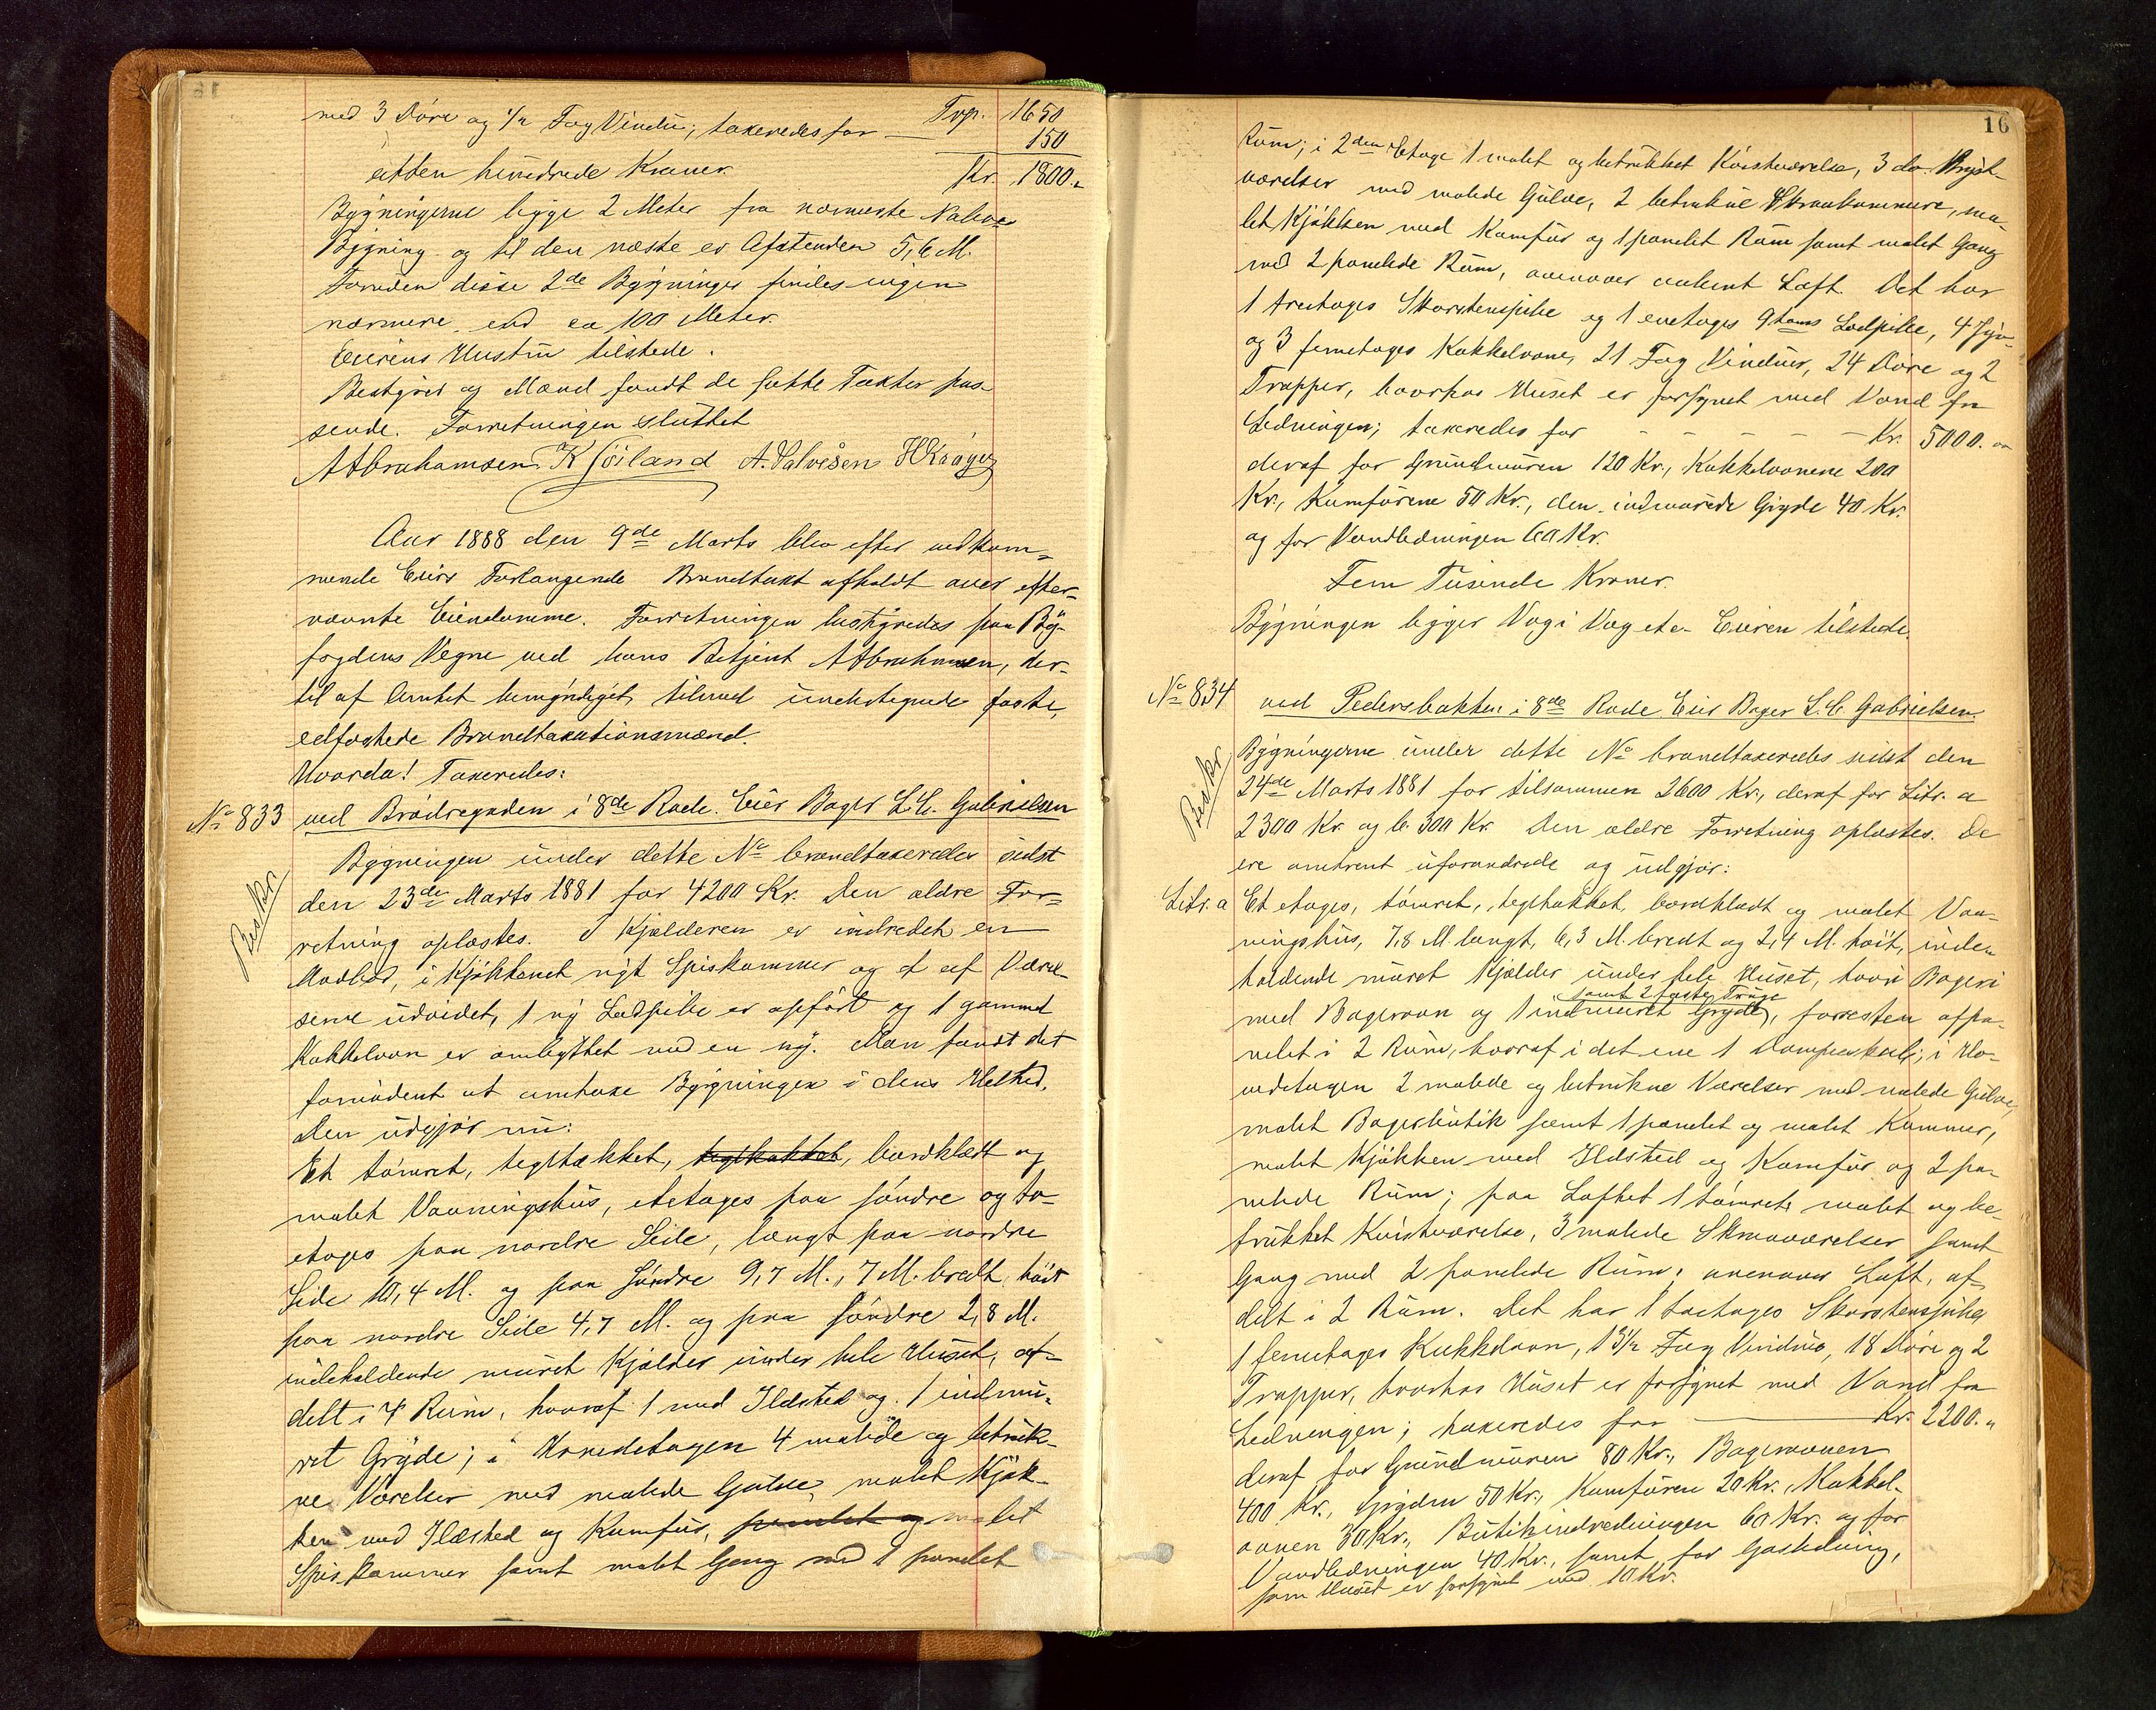 med 3 Döre og 1/2 Fag Vindu; taxeredes for — Trp. 1650
150
atten hundrede Kroner Kr. 1800.„
Bygningerne ligge 2 Meter fra nærmeste Nabos
Bygning og til den næste er Afstanden 5,6 M.
Foruden disse 2de Bygninger findes ingen
nærmere end ca 100 Meter.
Eierens Hustru tilstede.
Bestyrer og Mænd fandt de satte Taxter pas-
sende. Forretningen sluttet
A Abrahamsen K Soiland A. Salvesen H Kraager
Aar 1888 den 9de Marts blev efter vedkom-
mende Eiers Forlangende Brandtaxt afholdt over efter-
nævnte Eiendomme. Forretningen bestyredes paa By-
fogdens Vegne ved hans Betjent A Abrahamsen, der-
til af Amtet bemyndiget, tilmed undertegnede faste,
edfæstede Brandtaxationsmænd.
Hvorda! Taxeredes:
No 833 ved Brödregaden i 8de Rode. Eier Bager L. C. Gabrielsen
Beskr.
Bygningen under dette No brandtaxeredes sidst
den 23de Marts 1881 for 4200 Kr. Den ældre For-
retning oplæstes. I Kjælderen er indredet en
Madbod, i Kjökkenet nyt Spiskammer og et af Værel-
serne udvidet, 1 ny Lodpibe er opfört og 1 gammel
Kakkelovn er ombyttet med en ny. Man fandt det
fornödent at omtaxe Bygningen i dens Helhed.
Den udgjör nu:
Et tömret, teglhækket, teglhakket, bordklædt og
malet Vaaningshus, etetages paa söndre og to-
etages paa nordre Side, længt paa nordre
Side 10,4 M. og paa Söndre 9,7 M., 7 M. bredt, höit
paa nordre Side 4,7 M. og paa söndre 2,8 M.
indeholdende muret Kjælder under hele Huset, af-
delt i 4 Rum, hvoraf 1 med Ildsted og 1 indmu-
ret Gryde; i Hovedetagen 4 malede og betruk-
ne Værelser med malede Gulve, malet Kjök-
ken med Ildsted og Komfur, panelet og malet
Spiskammer samt malet Gang med 1 panelet
16
Rum; i 2den Etage 1 malet og betrukket Kvistværelse, 3 do. Bryst-
værelser med malede Gulve, 2 betrukne Skraakammere, ma-
let Kjökken med Komfur og 1 panelet Rum samt malet Gang
med 2 panelede Rum, ovenover aabent Loft. Det har
1 treetages Skorstenspibe og 1 enetages 9 toms Lodpibe, 4 fyr-
og 3 femetages Kakkelovne, 21 Fag Vinduer, 24 Döre og 2
Trapper, hvorhos Huset er forsynet med Vand fra
Ledningen; taxeredes for — — — — — Kr. 5000.„
deraf for Grundmuren 120 Kr., Kakkelovnene 200
Kr., Komfurene 50 Kr., den indmurede Gryde 40 Kr.
og for Vandledningen 60 Kr.
Fem Tusinde Kroner.
Bygningen ligger Væg i Væg etc. Eieren tilstede.
No 834 ved Pedersbakken i 8de Rode. Eier Bager L. C. Gabrielsen.
Beskr.
Bygningerne under dette No brandtaxeredes sidst den
24de Marts 1881 for tilsammen 2600 Kr., deraf for Litr. a
2300 Kr. og b. 300 Kr. Den ældre Forretning oplæstes. De
ere omtrent uforandrede og udgjör:
Litr. a Et etages, tömret, teglhækket, bordklædt og malet Vaa-
ningshus, 7,8 M. langt, 6,3 M. bredt og 2,4 M. höit, inde-
holdende muret Kjælder under hele Huset, hvori Bageri
samt 2 faste Truge
med Bagerovn og 1 indmuret Gryde, forresten afpa-
nelet i 2 Rum, hvoraf i det ene 1 Dampkedel; i Ho-
vedetagen 2 malede og betrukne Værelser med malede Gulve,
malet Bagerbutik samt 1 panelet og malet Kammer,
malet Kjökken med Ildsted og Komfur og 2 pa-
nelede Rum; paa Loftet 1 tömret, malet og be-
trukket Kvistværelse, 3 malede Skraaværelser samt
Gang med 2 panelede Rum, ovenover Loft, af-
delt i 2 Rum. Det har 1 toetages Skorstenspibe,
1 femetages Kakkelovn, 13 1/2 Fag Vinduer, 18 Döre og 2
Trapper, hvorhos Huset er forsynet med Vand fra
Ledningen; taxeredes for — Kr. 2200.„
deraf for Grundmuren 80 Kr., Bagerovnen
400 Kr., Gryden 50 Kr., Komfuren 20 Kr., Kakkel-
ovnen 30 Kr., Butikindredningen 60 Kr. og for
Vandledningen 40 Kr., samt for Gasledning,
som Huset er forsynet med 10 Kr.